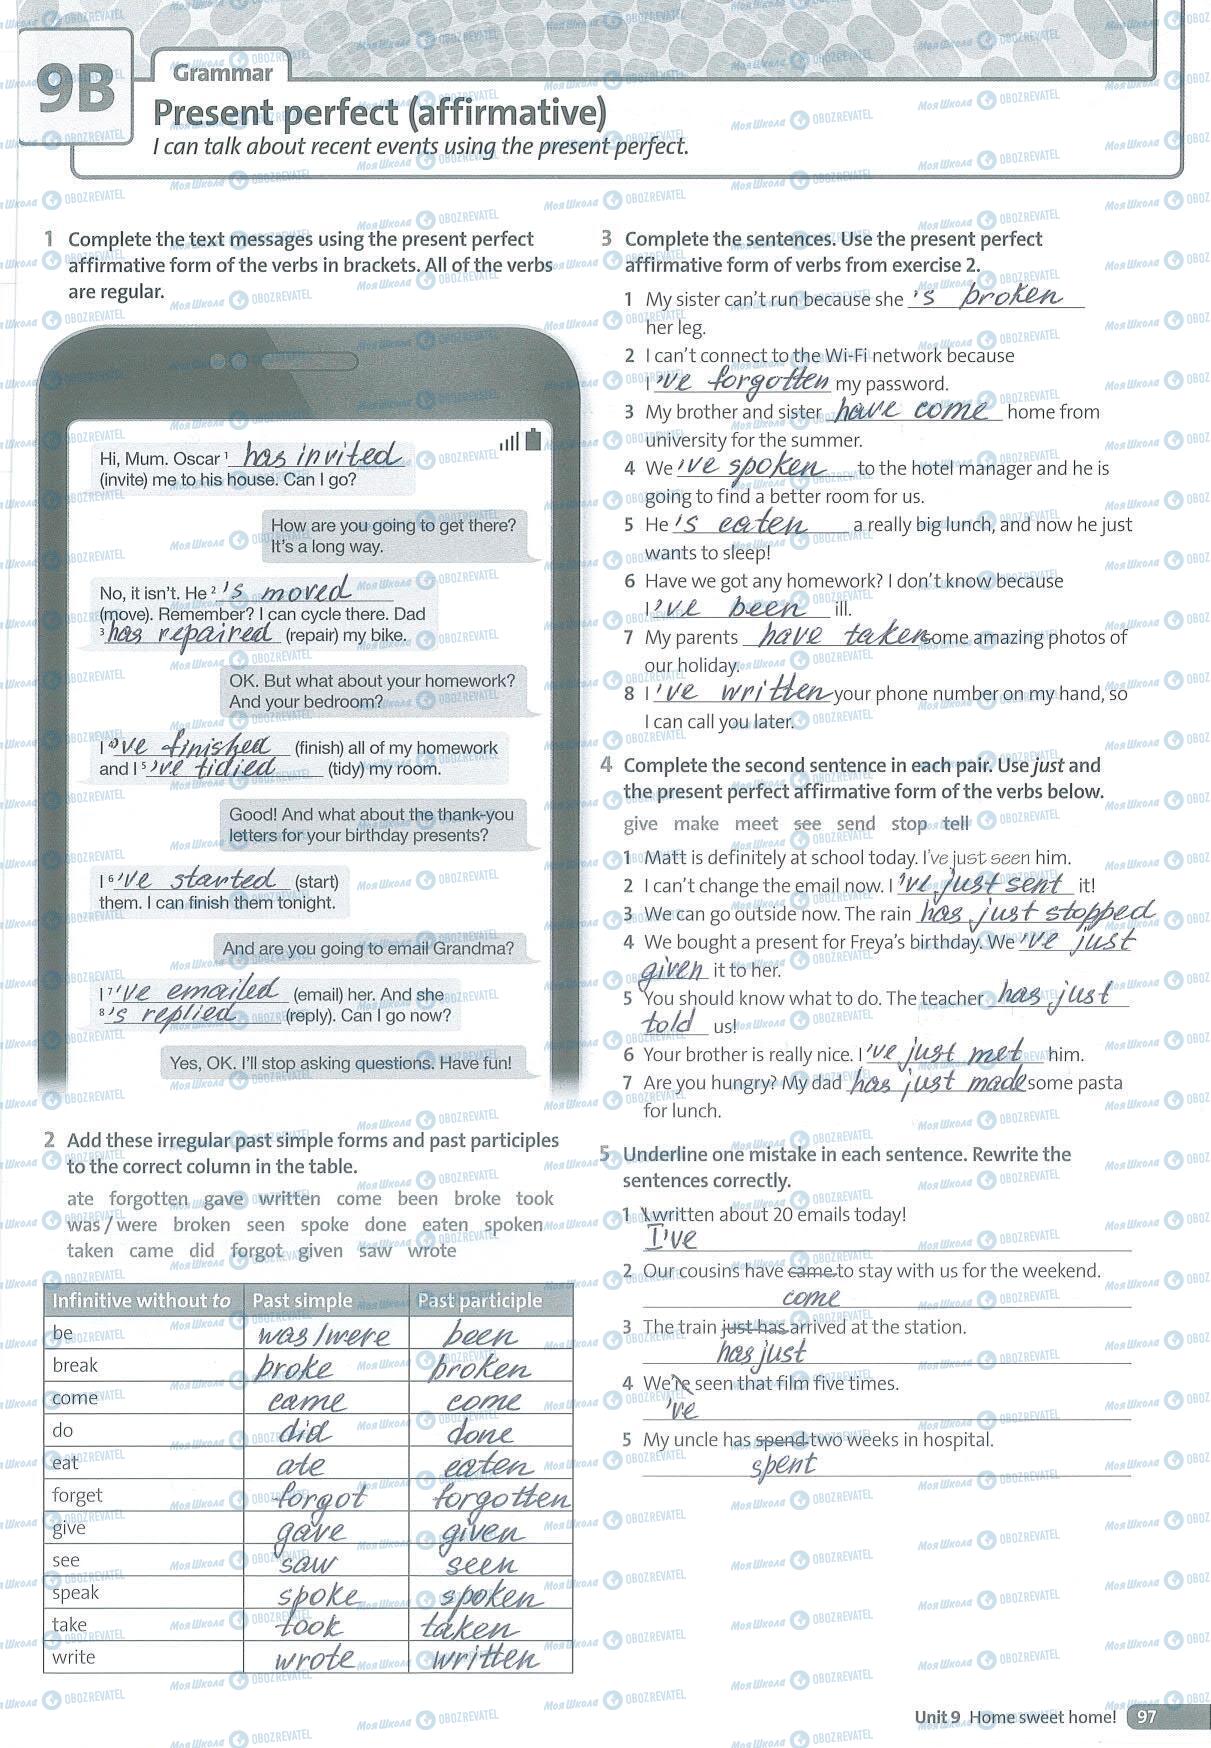 9B
Grammar
Present perfect (affirmative)
I can talk about recent events using the present perfect.
1 Complete the text messages using the present perfect
affirmative form of the verbs in brackets. All of the verbs
are regular.
Hi, Mum. Oscar ¹ has invited
(invite) me to his house. Can I go?
How are you going to get there?
It's a long way.
No, it isn't. He ² 's moved
(move). Remember? I can cycle there. Dad
³ has repaired (repair) my bike.
OK. But what about your homework?
And your bedroom?
I ⁴ 've finished (finish) all of my homework
and I ⁵ 've tidied (tidy) my room.
Good! And what about the thank-you
letters for your birthday presents?
I ⁶ 've started (start)
them. I can finish them tonight.
And are you going to email Grandma?
I ⁷ 've emailed (email) her. And she
⁸ 's replied (reply). Can I go now?
Yes, OK. I'll stop asking questions. Have fun!
2 Add these irregular past simple forms and past participles
to the correct column in the table.
ate forgotten gave written come been broke took
was / were broken seen spoke done eaten spoken
taken came did forgot given saw wrote
Infinitive without to Past simple Past participle
be was/were been
break broke broken
come came come
do did done
eat ate eaten
forget forgot forgotten
give gave given
see saw seen
speak spoke spoken
take took taken
write wrote written
3 Complete the sentences. Use the present perfect
affirmative form of verbs from exercise 2.
1 My sister can't run because she 's broken
her leg.
2 I can't connect to the Wi-Fi network because
I 've forgotten my password.
3 My brother and sister have come home from
university for the summer.
4 We 've spoken to the hotel manager and he is
going to find a better room for us.
5 He 's eaten a really big lunch, and now he just
wants to sleep!
6 Have we got any homework? I don't know because
I 've been ill.
7 My parents have taken some amazing photos of
our holiday.
8 I 've written your phone number on my hand, so
I can call you later.
4 Complete the second sentence in each pair. Use just and
the present perfect affirmative form of the verbs below.
give make meet see send stop tell
1 Matt is definitely at school today. I've just seen him.
2 I can't change the email now. I 've just sent it!
3 We can go outside now. The rain has just stopped
4 We bought a present for Freya's birthday. We 've just
given it to her.
5 You should know what to do. The teacher has just
told us!
6 Your brother is really nice. I 've just met him.
7 Are you hungry? My dad has just made some pasta
for lunch.
5 Underline one mistake in each sentence. Rewrite the
sentences correctly.
1 I written about 20 emails today!
I've
2 Our cousins have came to stay with us for the weekend.
come
3 The train just has arrived at the station.
has just
4 We're seen that film five times.
've
5 My uncle has spend two weeks in hospital.
spent
Unit 9 Home sweet home! 97
Моя Школа OBOZREVATEL